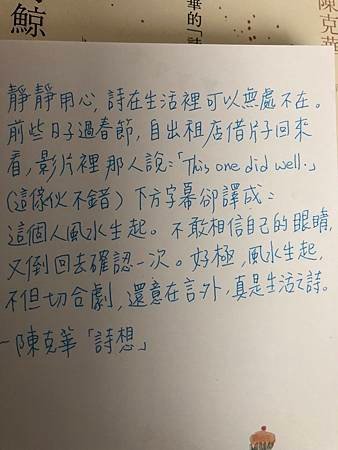 鯨
華的「詩
陳克華
靜靜用心，詩在生活裡可以無處不在。
前些日子過春節，自出租店借片子回來
看，影片裡那人說：「This one did well.」
(這傢伙不錯) 下方字幕卻譯成：
這個人風水生起。不敢相信自己的眼睛，
又倒回去確認一次。好極，風水生起，
不但切合劇，還意在言外，真是生活之詩。
—陳克華「詩想」